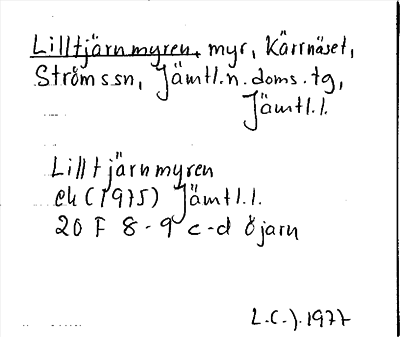 Lilltjärnmyren, myr, Kärrnäset,
Ströms sn, Jämtl. n. doms. tg,
Jämtl. l.
Lilltjärnmyren
ek (1975) Jämtl. l.
20 F 8-9 c-d Öjarn
L.C-J. 1977